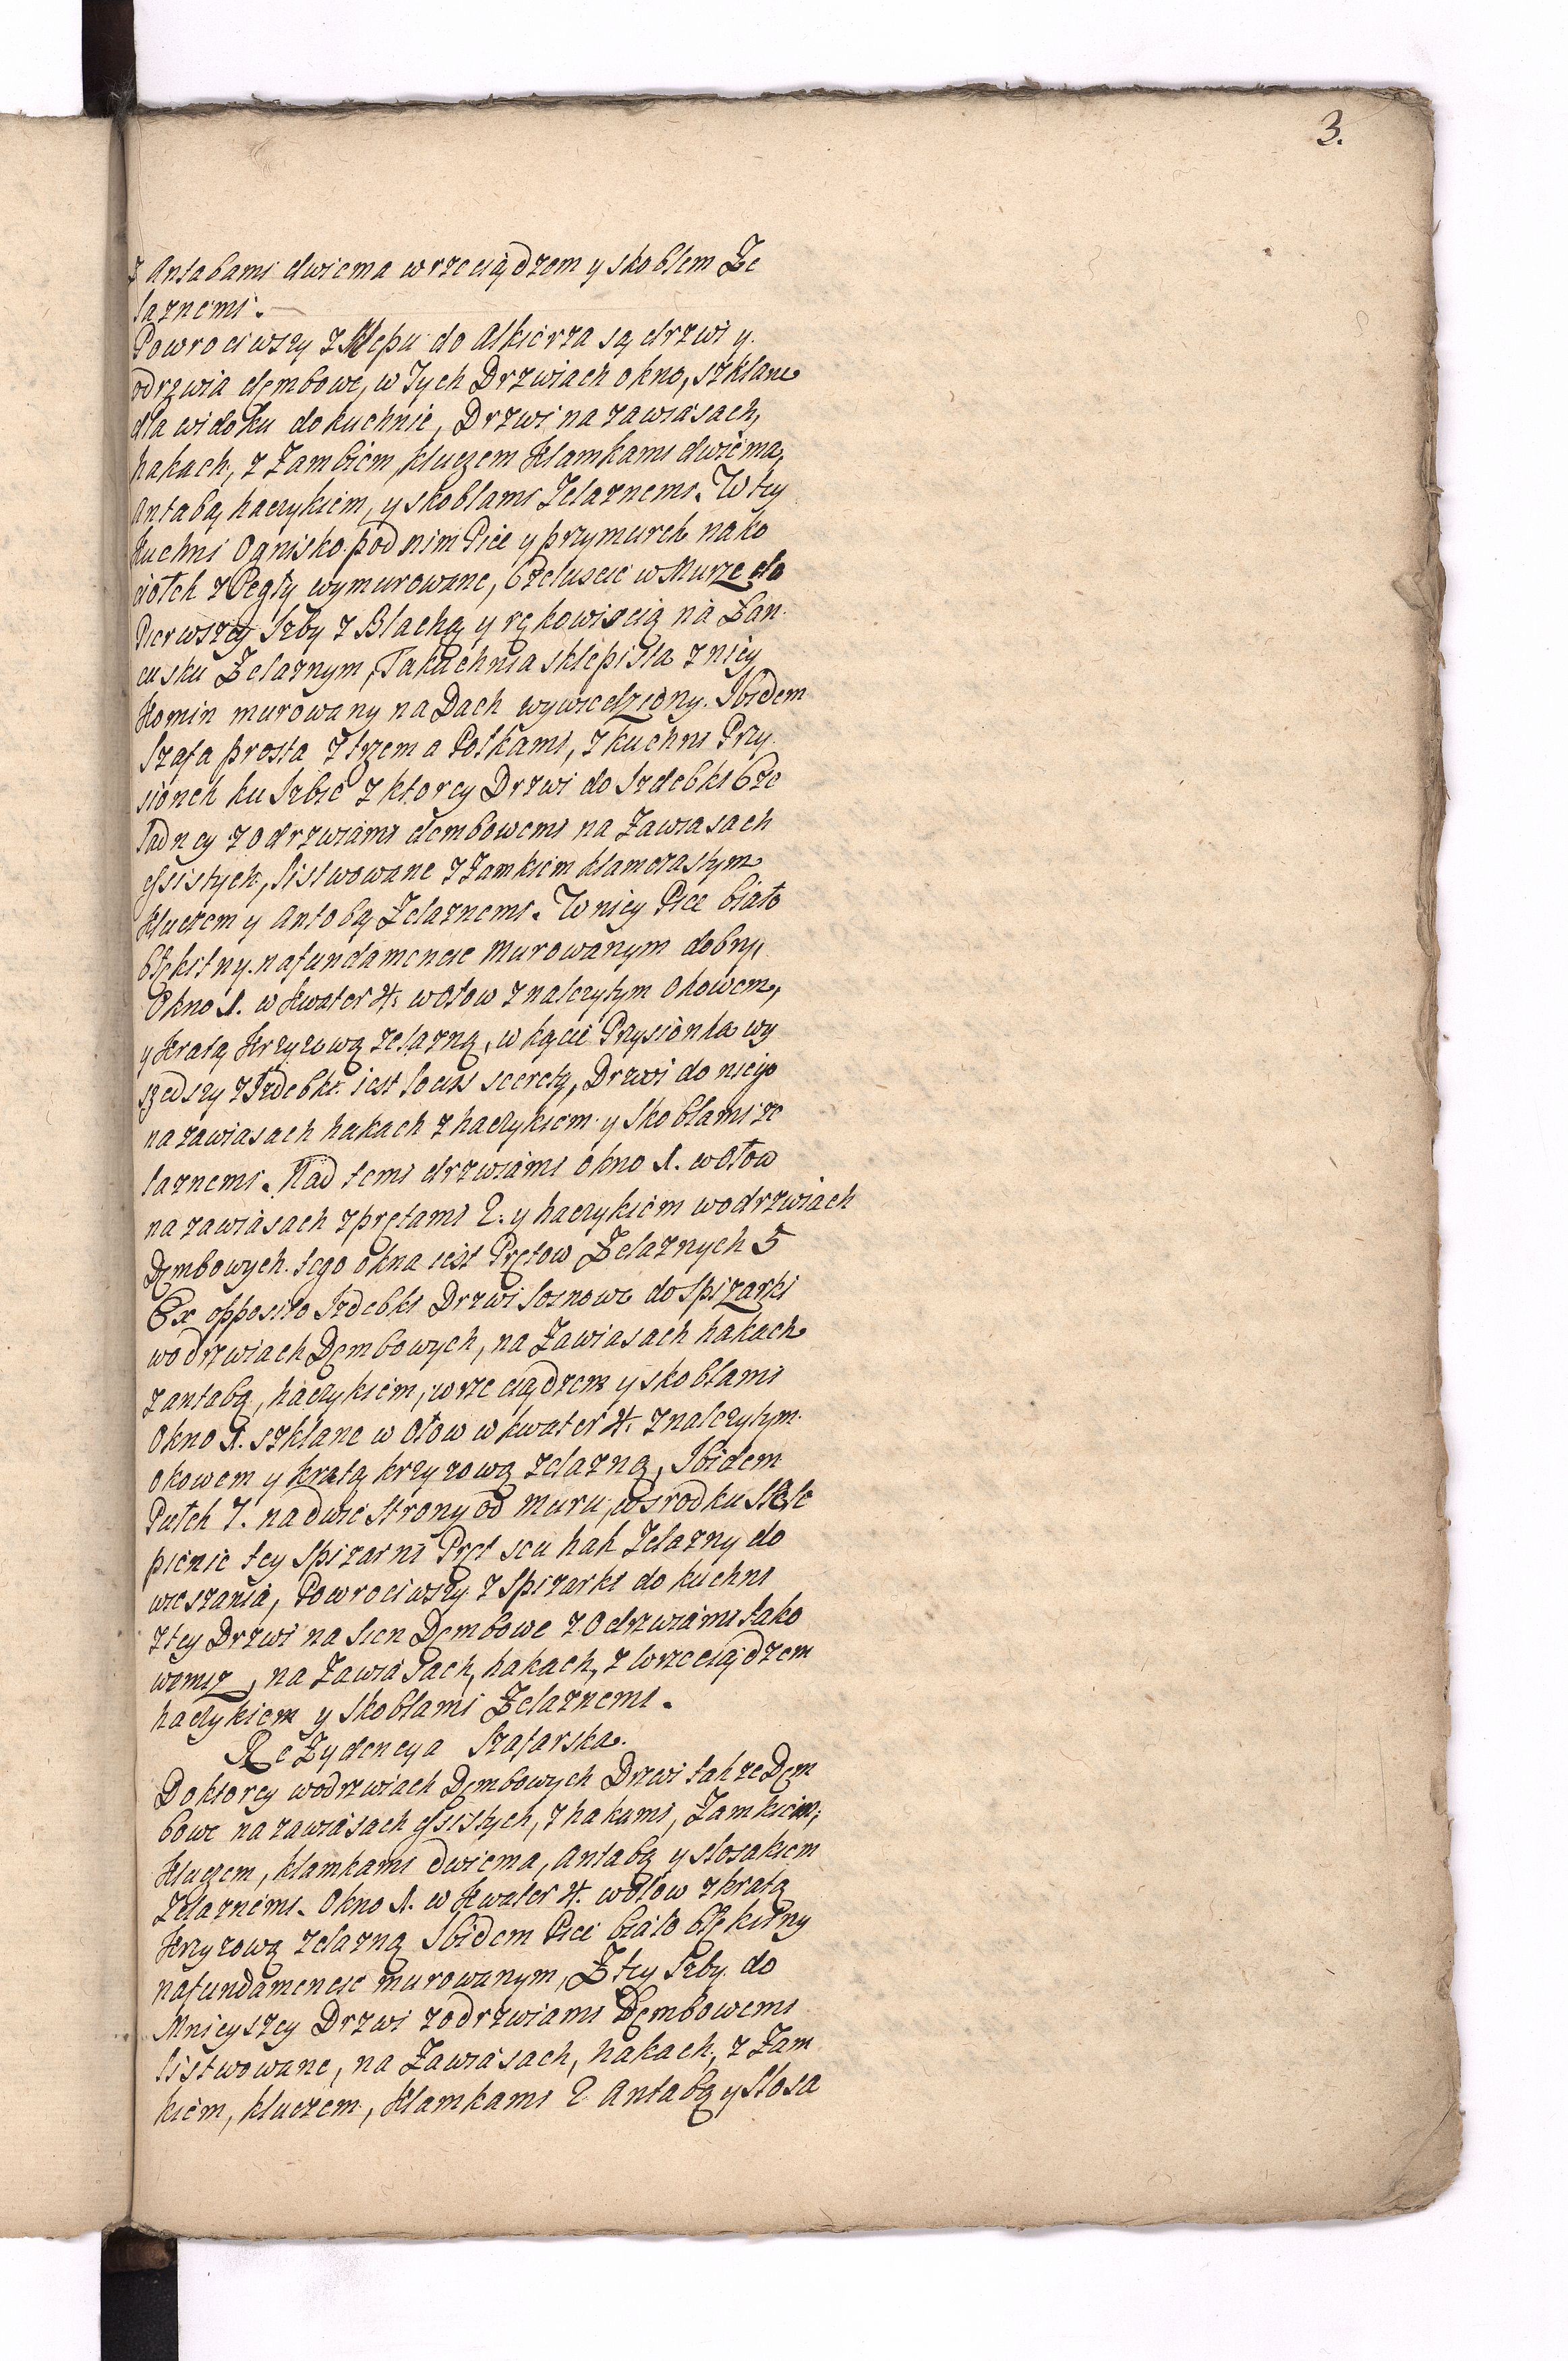 3.
z Antabami dwiema wrzeciądzem y skoblem Że
laznemi.
Powrociwszy z Sklepu do Alkierza są drzwi y
odrzwia dębowe, w Tych Drzwiach okno, szklane
dla widoku do kuchnie, Drzwi na zawiasach,
hakach, z Zamkiem kluczem Klamkami dwiema,
antabą haczykiem, y skoblami Zelaznemi. W tey
Kuchni Ognisko pod nim Piec y przymurek na ko
ciołek z Cegły wymurowane, Czeluscie w Murze do
Pierwszey Izby z Blachą y rękowiscią na Łan
cusku Żelaznym, Ta kuchnia sklepista z niey
Komin murowany na Dach wywiedziony. Ibidem
Szafa prosta z trzema Połkami, z kuchni Przy
sionek ku Izbie z ktorey Drzwi do Izdebki Cze
ladney z odrzwiami dembowemi na Zawiasach
essistych, listwowane z Zamkiem klamczastym
kluczem y Antobą Zelaznemi. W niey Piec biało
błękitny na fundamencie murowanym dobry,
Okno 1. w Kwater 4. w ołow z należytym Okowem,
y Kratą Krzyzową zelazną, w kącie Przysionka wy
szedszy z Izdebki iest locus secretg, Drzwi do niego
na zawiasach hakach z haczykiem y Skoblami ze
laznemi. Nad temi drzwiami okno 1. w ołow
na zawiasach z prętami 2. y haczykiem w odrzwiach
Dębowych. tego okna iest Prętow Żelaznych 5
Ex opposito Izdebki Drzwi sosnowe do Spizarki
w odrzwiach Dembowych, na Zawiasach hakach
z antabą, haczykiem, wrzeciądzem y skoblami
Okno 1. szklane w Ołow w kwater 4. z należytym
okowem y kratą krzyzową zelazną, Ibidem
Pułek 7. na dwie strony od muru, w srodku skle
pienie tey Spizarni Pręt seu hak Zelazny do
wieszania, Powrociwszy z Spizarki do kuchni
z tey Drzwi na Sien Dembowe z Odrzwiami tako
wemiz, na Zawiasach, hakach, z Wrzeciądzem
haczykiem y Skoblami Żelaznemi.
Rezydencya Szafarska.
Do ktorey w odrzwiach Dembowych Drzwi takze Dem
bowe na zawiasach essistych, z hakami, Zamkiem,
Kluczem, klamkami dwiema, Antabą y Słosakiem
Zelaznemi. Okno 1. w Kwater 4. w ołow z kratą
Krzyzową zelazną Ibidem Piec biało błękitny
na fundamencie murowanym, Z tey Izby do
Mnieyszey Drzwi z odrzwiami Dembowemi
listwowane, na Zawiasach, hakach, z Zam
kiem, kluczem, Klamkami 2 Antabą y Słosa